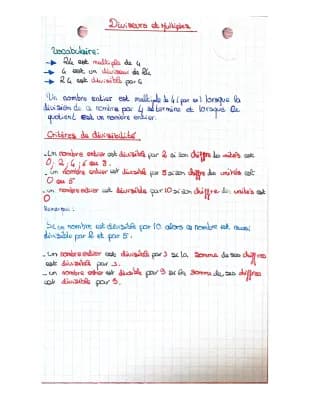 Diviseurs et Multiples
Vocabulaire:
→ 24 est multiple de 4
→ 4 est un diviseur de 24
→ 24 est divisible par 4
Un nombre entier est multiple de 4 (par ex) lorsque la
division de ce nombre par 4 se termine et lorsque le
quotient est un nombre entier.
Critères de divisibilité
- Un nombre entier est divisible par 2 si son chiffre des unités est
0; 2; 4; 6 ou 8.
- Un nombre entier est divisible par 5 si son chiffre des unités est
0 ou 5
- un nombre entier est divisible par 10 si son chiffre des unités est
0
Remarque:
Si un nombre est divisible par 10 alors ce nombre est aussi
divisible par 2 et par 5.
- un nombre entier est divisible par 3 si la somme de ses chiffres
est divisible par 3.
- un nombre entier est divisible par 9 si la somme de ses chiffres
est divisible par 9.